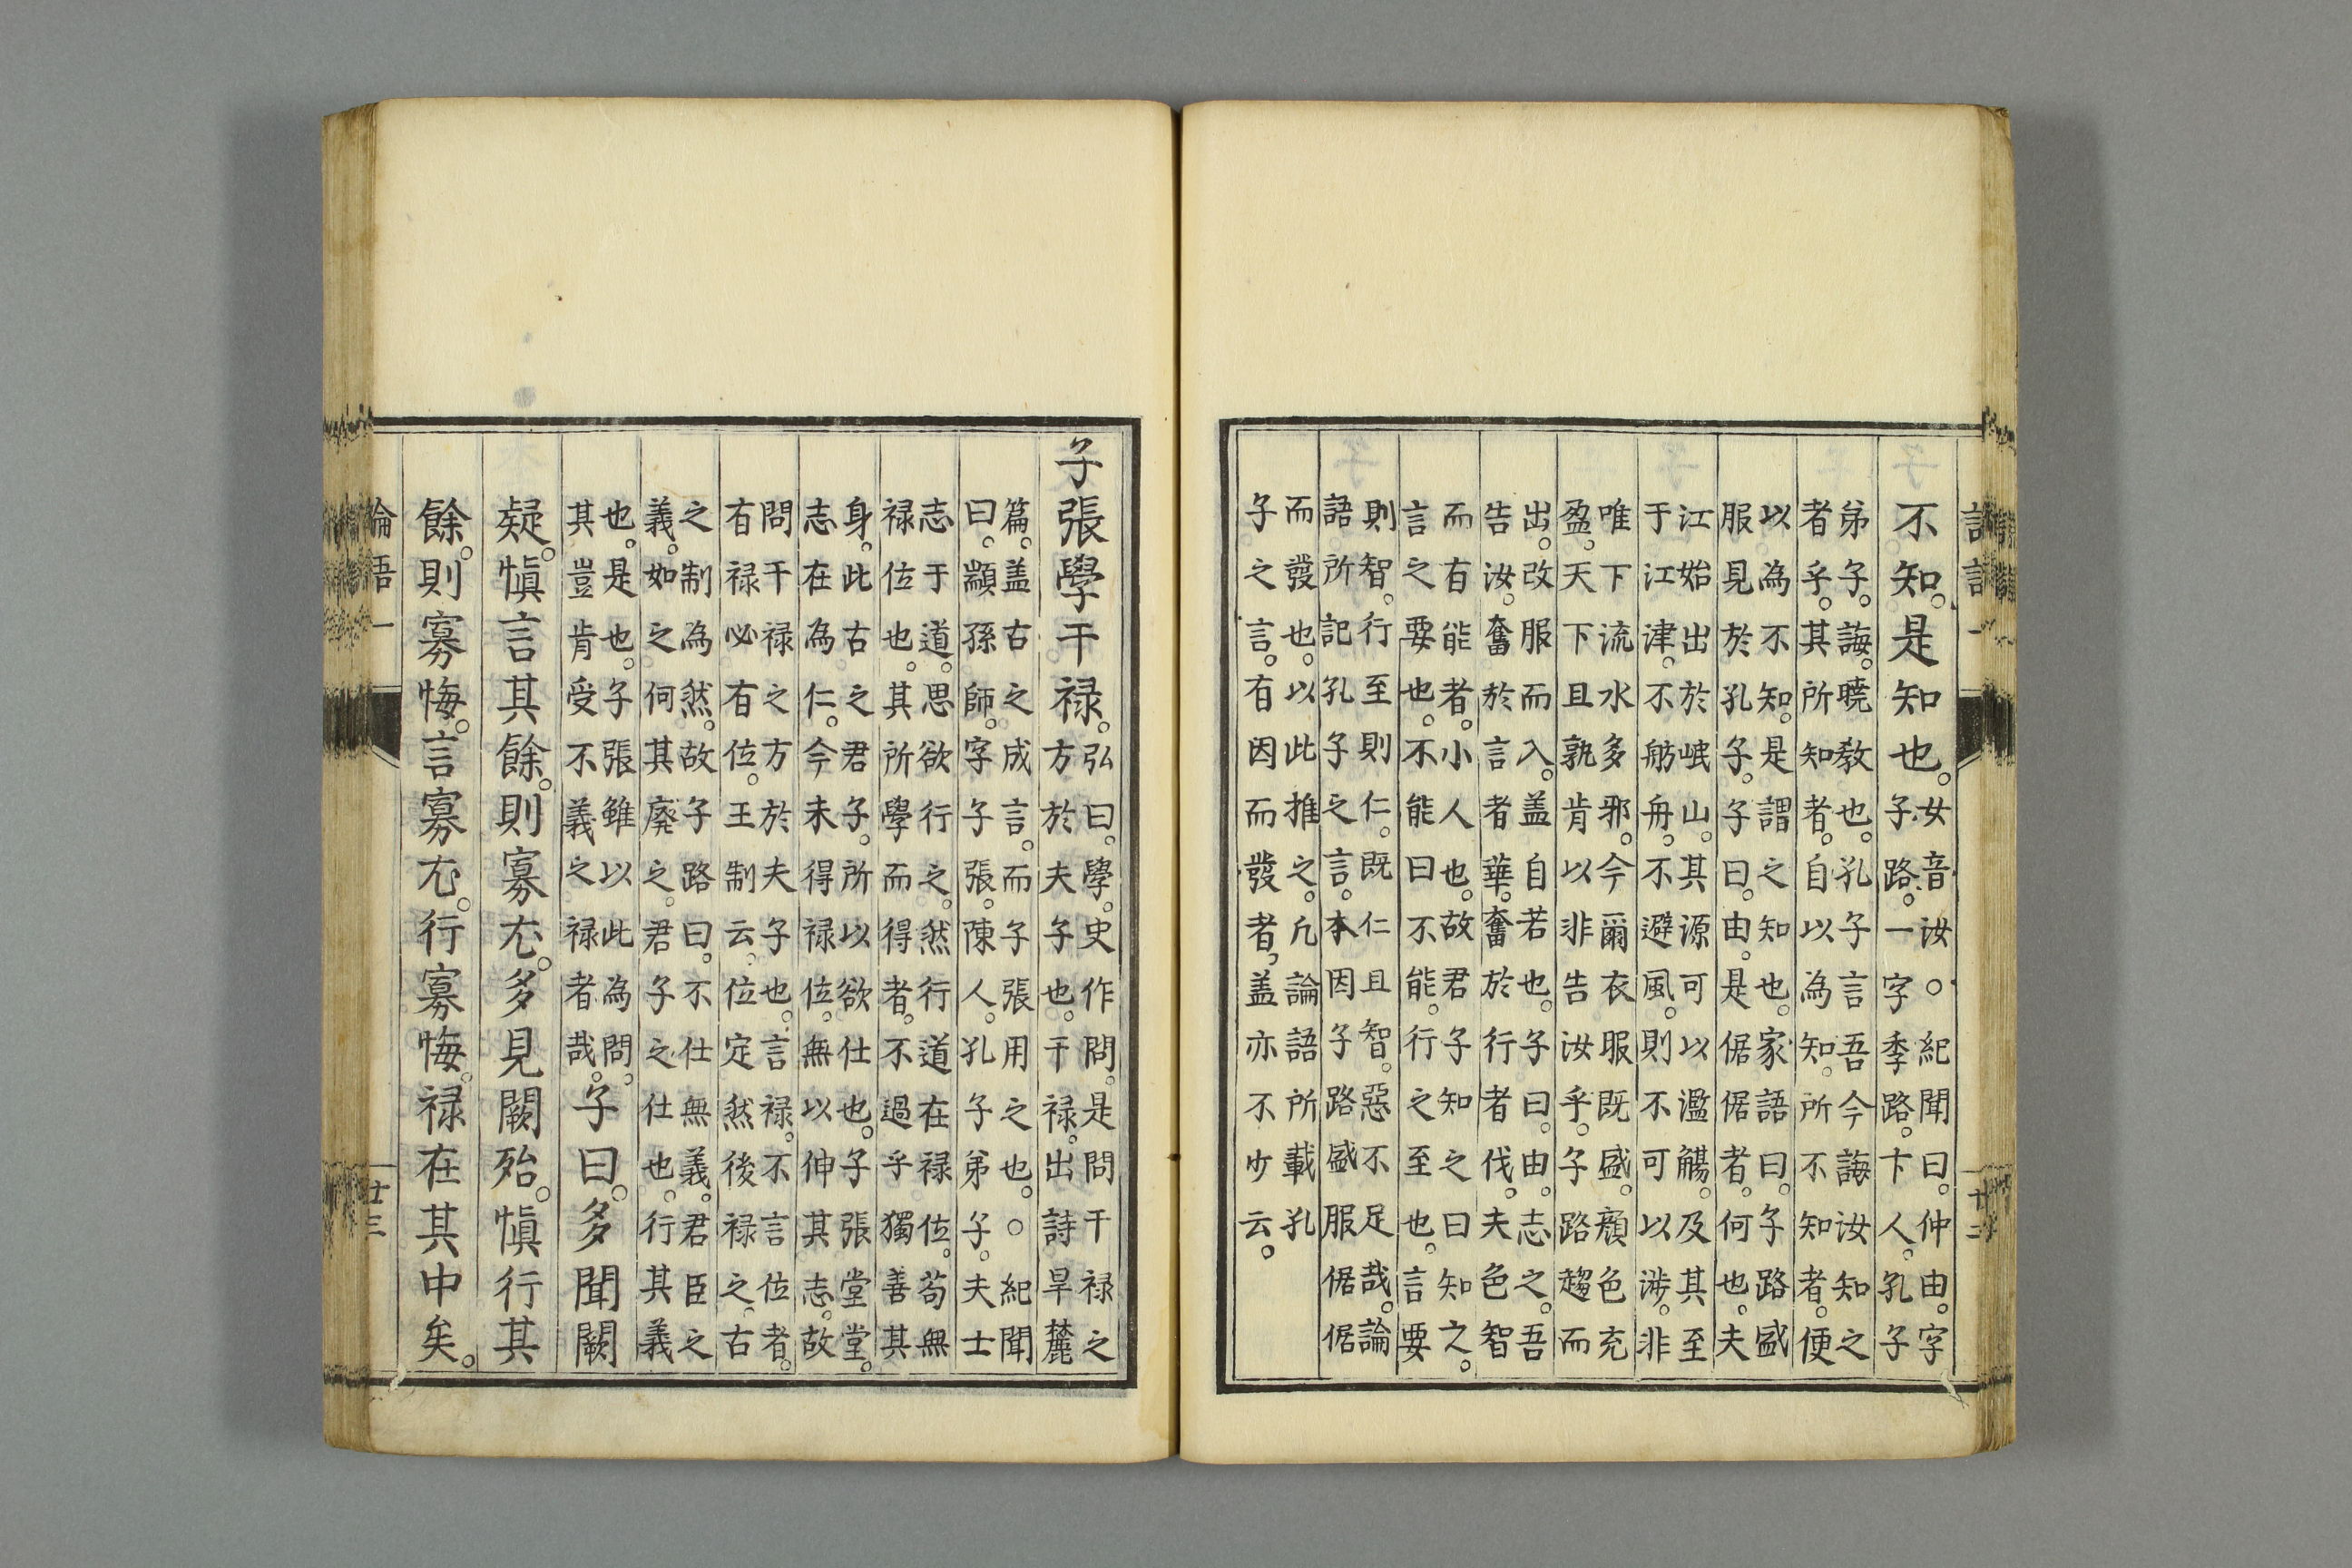 不知。是知也。
女音汝。○紀聞曰。仲由。字
子路。一字季路。卞人。孔子
弟子。誨。曉教也。孔子言吾今誨汝知之
者乎。其所知者。自以為知。所不知者。便
以為不知。是謂之知也。家語曰。子路盛
服見於孔子。子曰。由。是倨倨者。何也。夫
江始出於岷山。其源可以濫觴。及其至
于江津。不舫舟。不避風。則不可以涉。非
唯下流水多邪。今爾衣服既盛。顏色充
盈。天下且孰肯以非告汝乎。子路趨而
出。改服而入。盖自若也。子曰。由。志之。吾
告汝。奮於言者華。奮於行者伐。夫色智
而有能者。小人也。故君子知之曰知之。
言之要也。不能曰不能。行之至也。言要
則智。行至則仁。既仁且智。惡不足哉。論
語所記孔子之言。本因子路盛服倨倨
而發也。以此推之。凡論語所載孔
子之言。有因而發者。盖亦不少云。
子張學干禄。
弘曰。學。史作問。是問干禄之
方於夫子也。干禄。出詩旱麓
篇。盖古之成言。而子張用之也。○紀聞
曰。顓孫師。字子張。陳人。孔子弟子。夫士
志于道。思欲行之。然行道在禄位。苟無
禄位也。其所學而得者。不過乎獨善其
身。此古之君子。所以欲仕也。子張堂堂。
志在為仁。今未得禄位。無以伸其志。故
問干禄之方於夫子也。言禄。不言位者。
有禄必有位。王制云。位定然後禄之。古
之制為然。故子路曰。不仕無義。君臣之
義。如之何其廢之。君子之仕也。行其義
也。是也。子張雖以此為問。
其豈肯受不義之禄者哉。
子曰。多聞闕
疑。愼言其餘。則寡尤。多見闕殆。愼行其
餘。則寡悔。言寡尤。行寡悔。禄在其中矣。
論語一
廿三